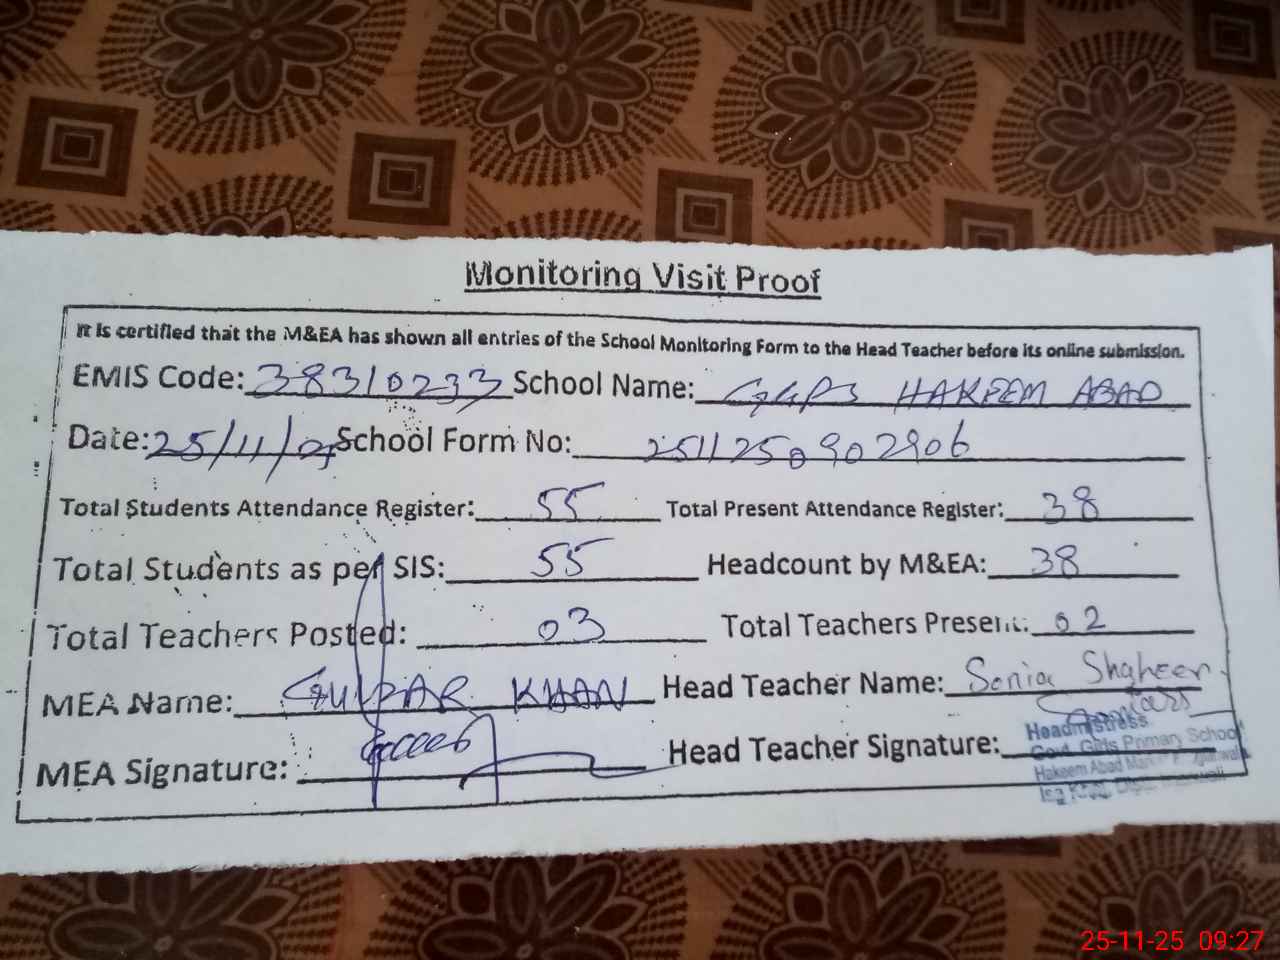 Monitoring Visit Proof
It is certified that the M&EA has shown all entries of the School Monitoring Form to the Head Teacher before its online submission.
EMIS Code: 38310233 School Name: GGPS HAKEEM ABAD
Date: 25/11/25 School Form No: 2511250902906
Total Students Attendance Register: 55 Total Present Attendance Register: 38
Total Students as per SIS: 55 Headcount by M&EA: 38
Total Teachers Posted: 03 Total Teachers Present: 02
MEA Name: GULZAR KHAN Head Teacher Name: Sonia Shaheen
MEA Signature: Head Teacher Signature:
Headmistress
Govt. Girls Primary School
Hakeem Abad
Isa Khel, Distt. Mianwali
25-11-25 09:27